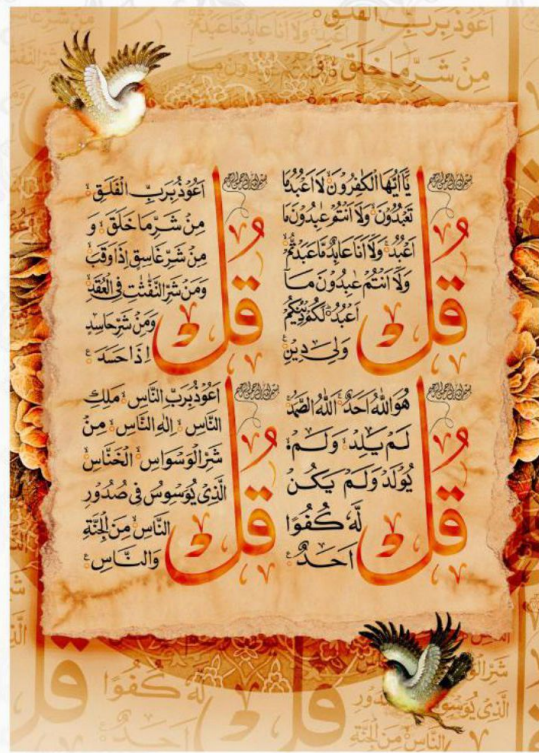 بسم الله الرحمن الرحيم
قل
یٰۤاَیُّهَا الْکٰفِرُوْنَ لَا اَعْبُدُ مَا
تَعْبُدُوْنَ وَلَا اَنْتُمْ عٰبِدُوْنَ مَا
اَعْبُدُ وَلَا اَنَا عَابِدٌ مَّا عَبَدْتُّمْ
وَلَا اَنْتُمْ عٰبِدُوْنَ مَا
اَعْبُدُ لَکُمْ دِیْنُکُمْ
وَلِیَ دِیْنِ
بسم الله الرحمن الرحيم
قل
اَعُوْذُ بِرَبِّ الْفَلَقِ
مِنْ شَرِّ مَا خَلَقَ وَ
مِنْ شَرِّ غَاسِقٍ اِذَا وَقَبَ
وَمِنْ شَرِّ النَّفّٰثٰتِ فِی الْعُقَدِ
وَمِنْ شَرِّ حَاسِدٍ
اِذَا حَسَدَ
بسم الله الرحمن الرحيم
قل
هُوَ اللّٰهُ اَحَدٌ اَللّٰهُ الصَّمَدُ
لَمْ یَلِدْ وَلَمْ
یُوْلَدْ وَلَمْ یَکُنْ
لَّهٗ کُفُوًا
اَحَدٌ
بسم الله الرحمن الرحيم
قل
اَعُوْذُ بِرَبِّ النَّاسِ مَلِکِ
النَّاسِ اِلٰهِ النَّاسِ مِنْ
شَرِّ الْوَسْوَاسِ الْخَنَّاسِ
الَّذِیْ یُوَسْوِسُ فِیْ صُدُوْرِ
النَّاسِ مِنَ الْجِنَّةِ
وَالنَّاسِ